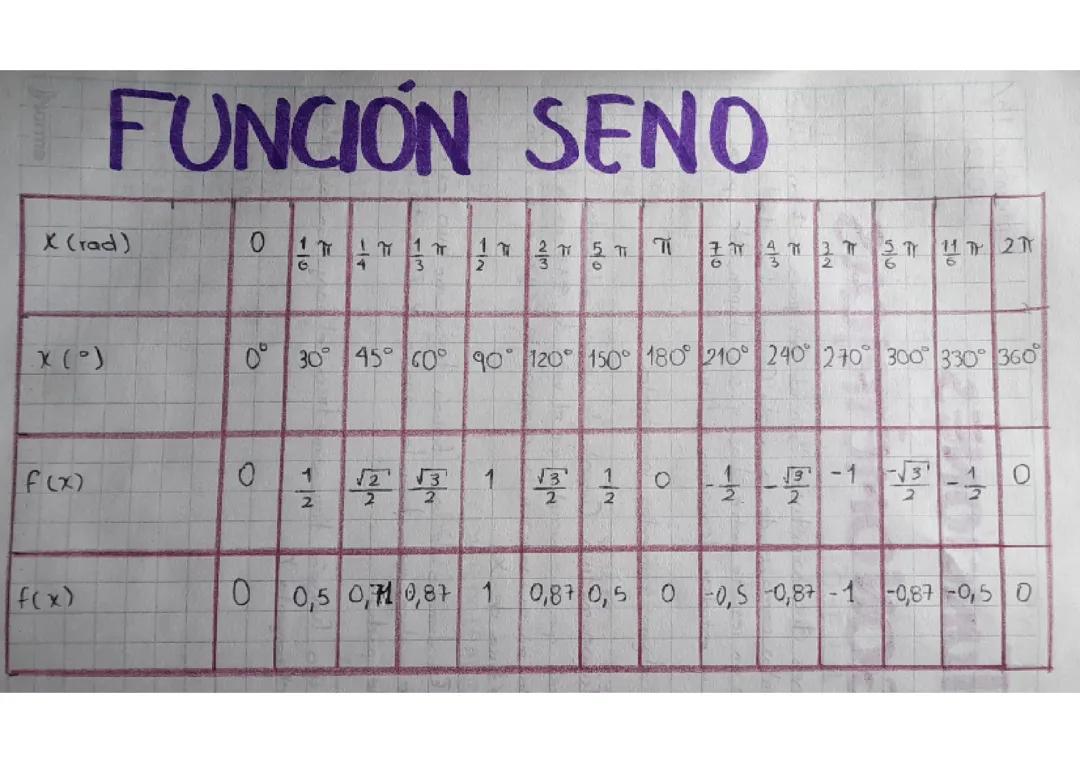 FUNCIÓN SENO
x (rad) 0 1/6 π 1/4 π 1/3 π 1/2 π 2/3 π 5/6 π π 7/6 π 4/3 π 3/2 π 5/6 π 11/6 π 2π
x (°) 0° 30° 45° 60° 90° 120° 150° 180° 210° 240° 270° 300° 330° 360°
f(x) 0 1/2 √2/2 √3/2 1 √3/2 1/2 0 -1/2 -√3/2 -1 -√3/2 -1/2 0
f(x) 0 0,5 0,71 0,87 1 0,87 0,5 0 -0,5 -0,87 -1 -0,87 -0,5 0